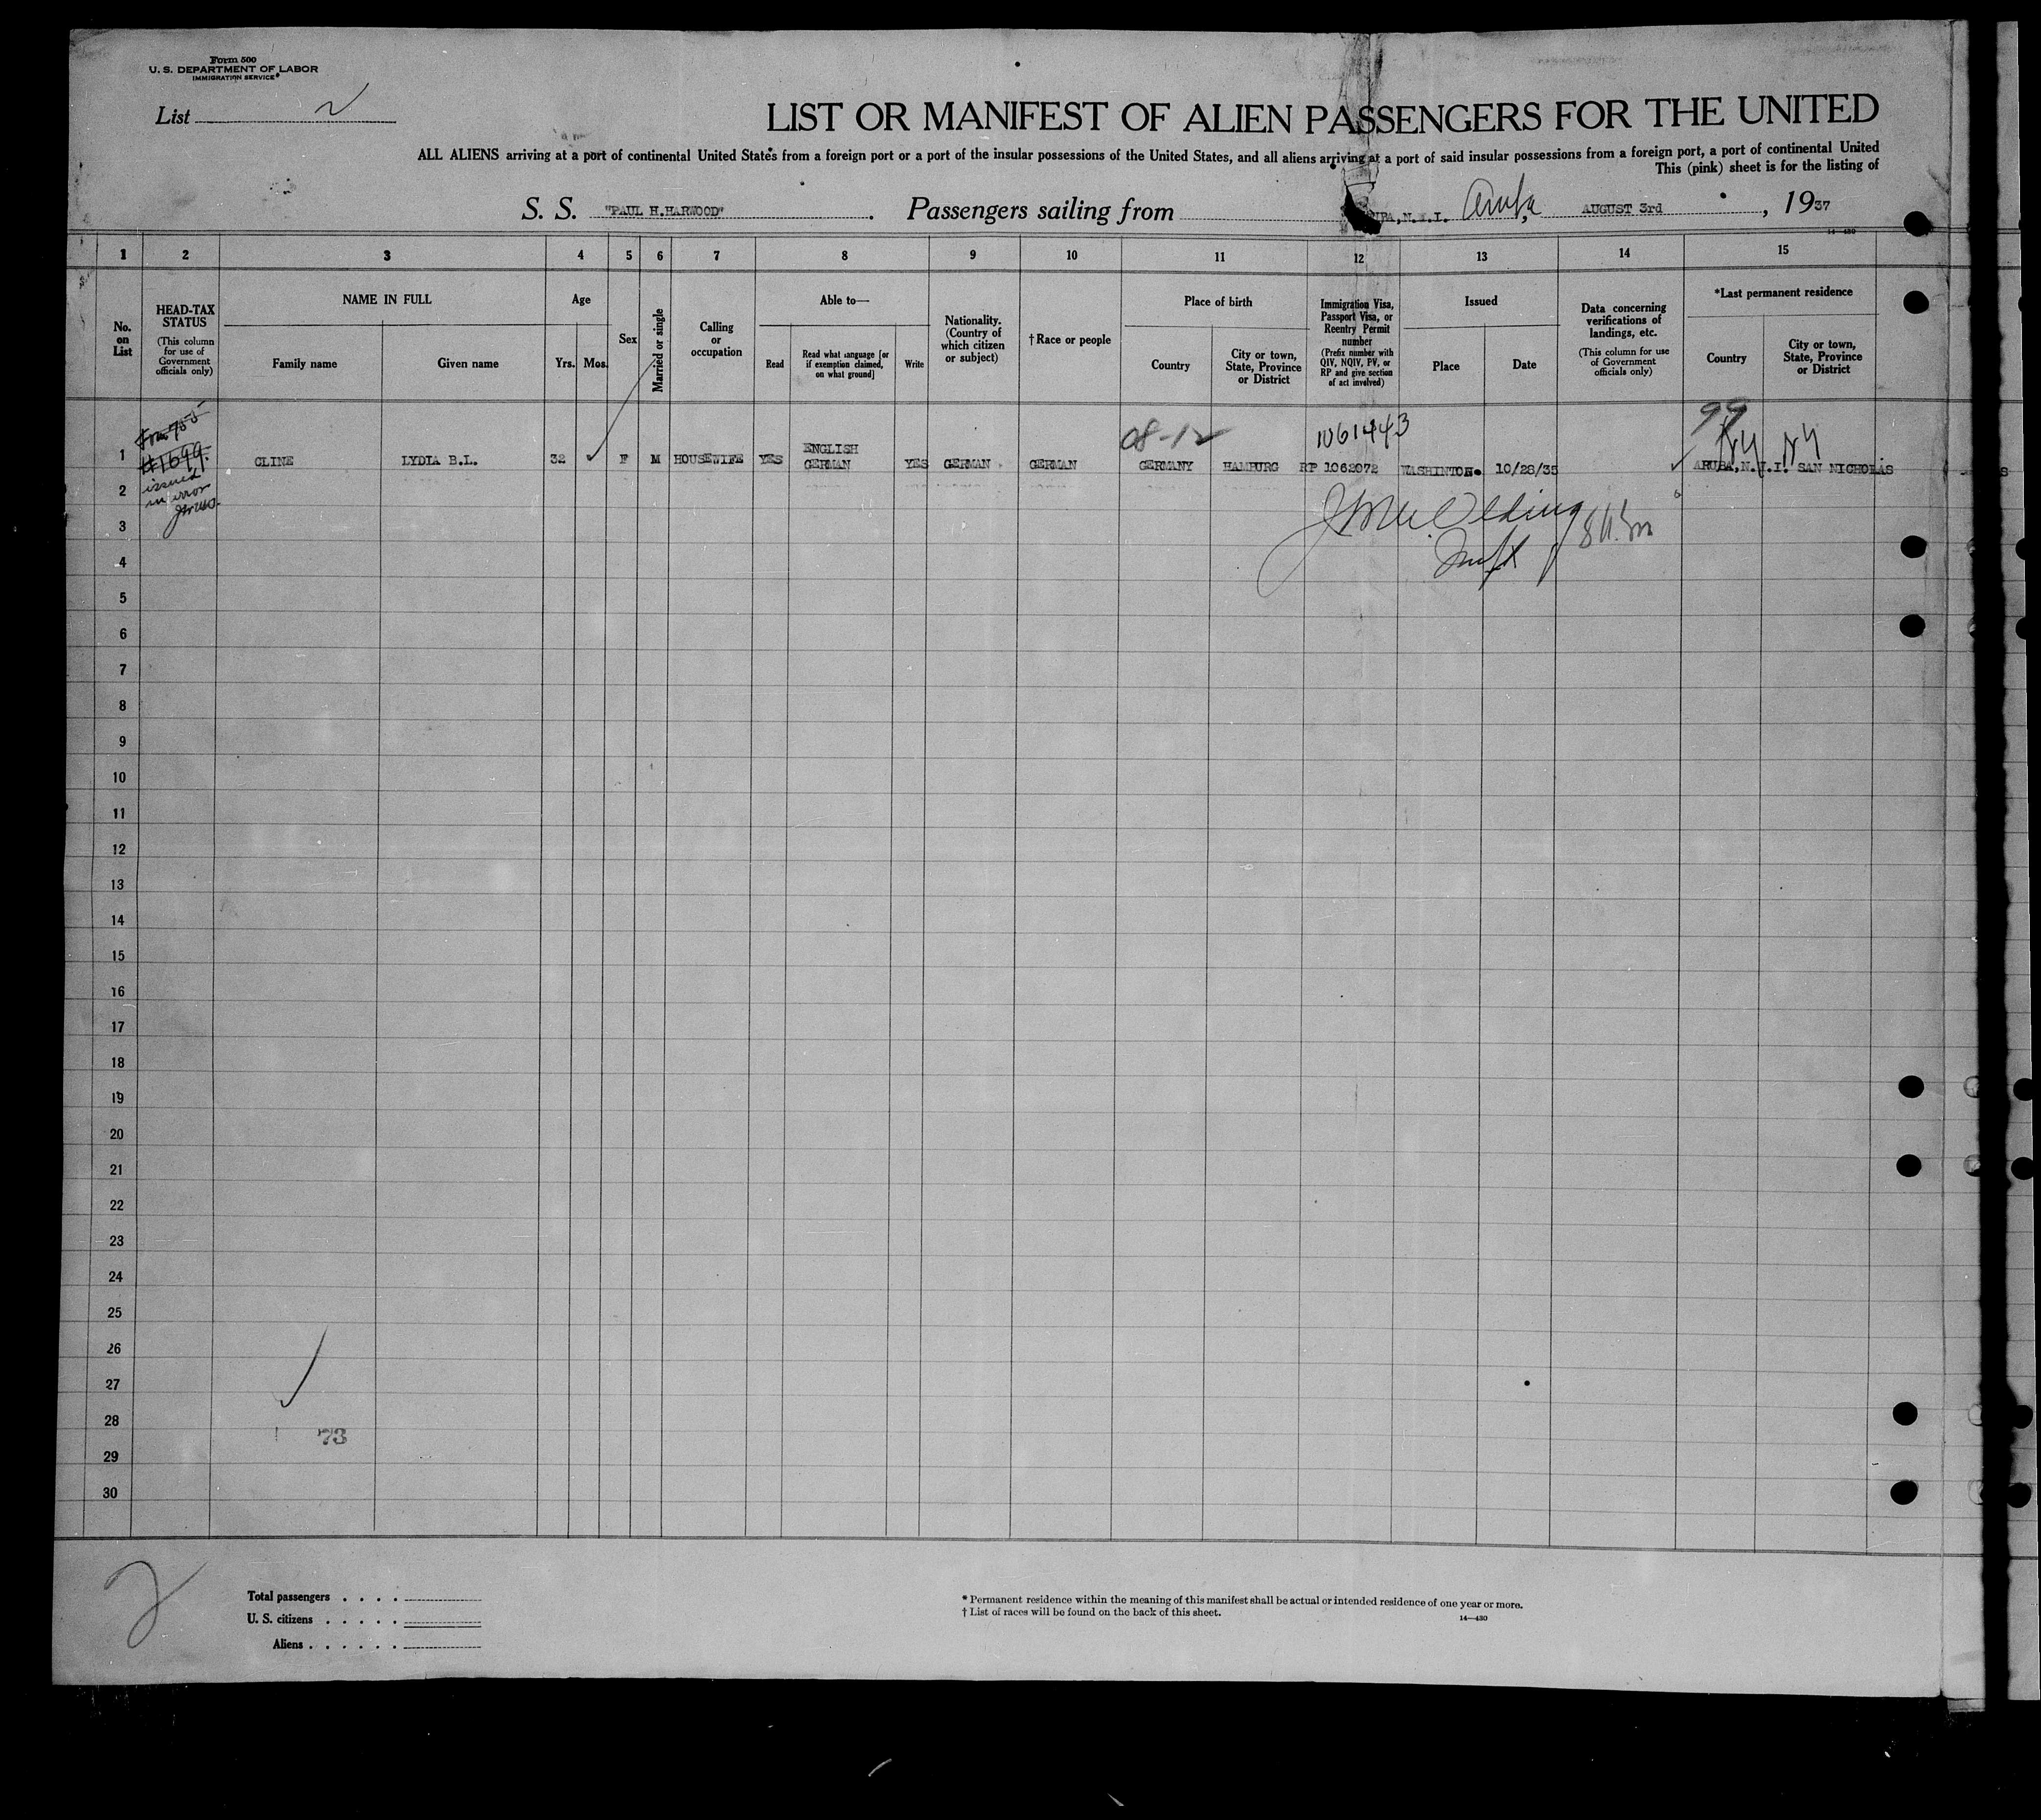 Form 500
U. S. DEPARTMENT OF LABOR
IMMIGRATION SERVICE
List 2
LIST OR MANIFEST OF ALIEN PASSENGERS FOR THE UNITED
ALL ALIENS arriving at a port of continental United States from a foreign port or a port of the insular possessions of the United States, and all aliens arriving at a port of said insular possessions from a foreign port, a port of continental United
This (pink) sheet is for the listing of
S. S. "PAUL H.HARWOOD". Passengers sailing from Aruba, AUGUST 3rd, 1937
14-430
1 2 3 4 5 6 7 8 9 10 11 12 13 14 15
No. on List
HEAD-TAX STATUS
(This column for use of Government officials only)
NAME IN FULL
Family name
Given name
Age
Yrs.
Mos.
Sex
Married or single
Calling or occupation
Able to—
Read
Read what language [or if exemption claimed, on what ground]
Write
Nationality. (Country of which citizen or subject)
†Race or people
Place of birth
Country
City or town, State, Province or District
Immigration Visa, Passport Visa, or Reentry Permit number
(Prefix number with QIV, NQIV, PV, or RP and give section of act involved)
Issued
Place
Date
Data concerning verifications of landings, etc.
(This column for use of Government officials only)
*Last permanent residence
Country
City or town, State, Province or District
08-12
1061443
99
NY NY
#1699.
issued
in error
1 CLINE LYDIA B.L. 32 F M HOUSEWIFE YES ENGLISH GERMAN YES GERMAN GERMAN GERMANY HAMBURG RP 1062072 WASHINTON. 10/28/35 ARUBA,N.I.I. SAN NICHOLAS
2
3
4
5
6
7
8
9
10
11
12
13
14
15
16
17
18
19
20
21
22
23
24
25
26
27
28
73
29
30
2
Total passengers . . . .
U. S. citizens . . . . .
Aliens . . . . . .
* Permanent residence within the meaning of this manifest shall be actual or intended residence of one year or more.
† List of races will be found on the back of this sheet.
14—430